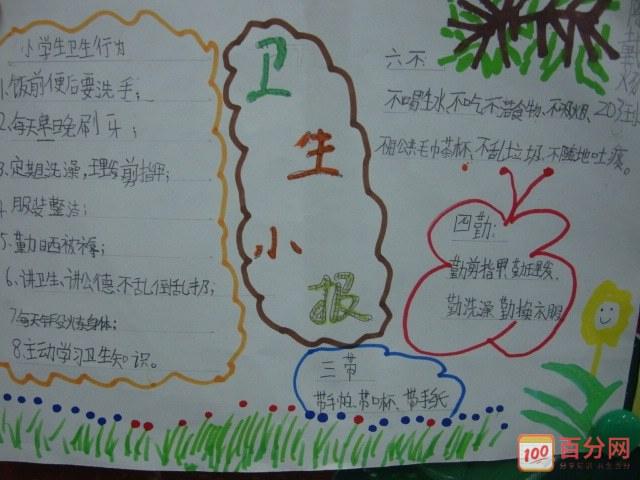 卫生小报
小学生卫生行为
1.饭前便后要洗手；
2.每天早晚刷牙；
3.定期洗澡，理发剪指甲；
4.服装整洁；
5.勤晒被褥；
6.讲卫生、讲公德、不乱倒乱扔；
7.每天锻炼身体；
8.主动学习卫生知识。
六不
不喝生水、不吃不洁食物、不吸烟、
不用公共毛巾茶杯、不乱扔垃圾、不随地吐痰。
四勤：
勤剪指甲、勤理发、
勤洗澡 勤换衣服
三带
带手帕、带口杯、带手纸
百分网